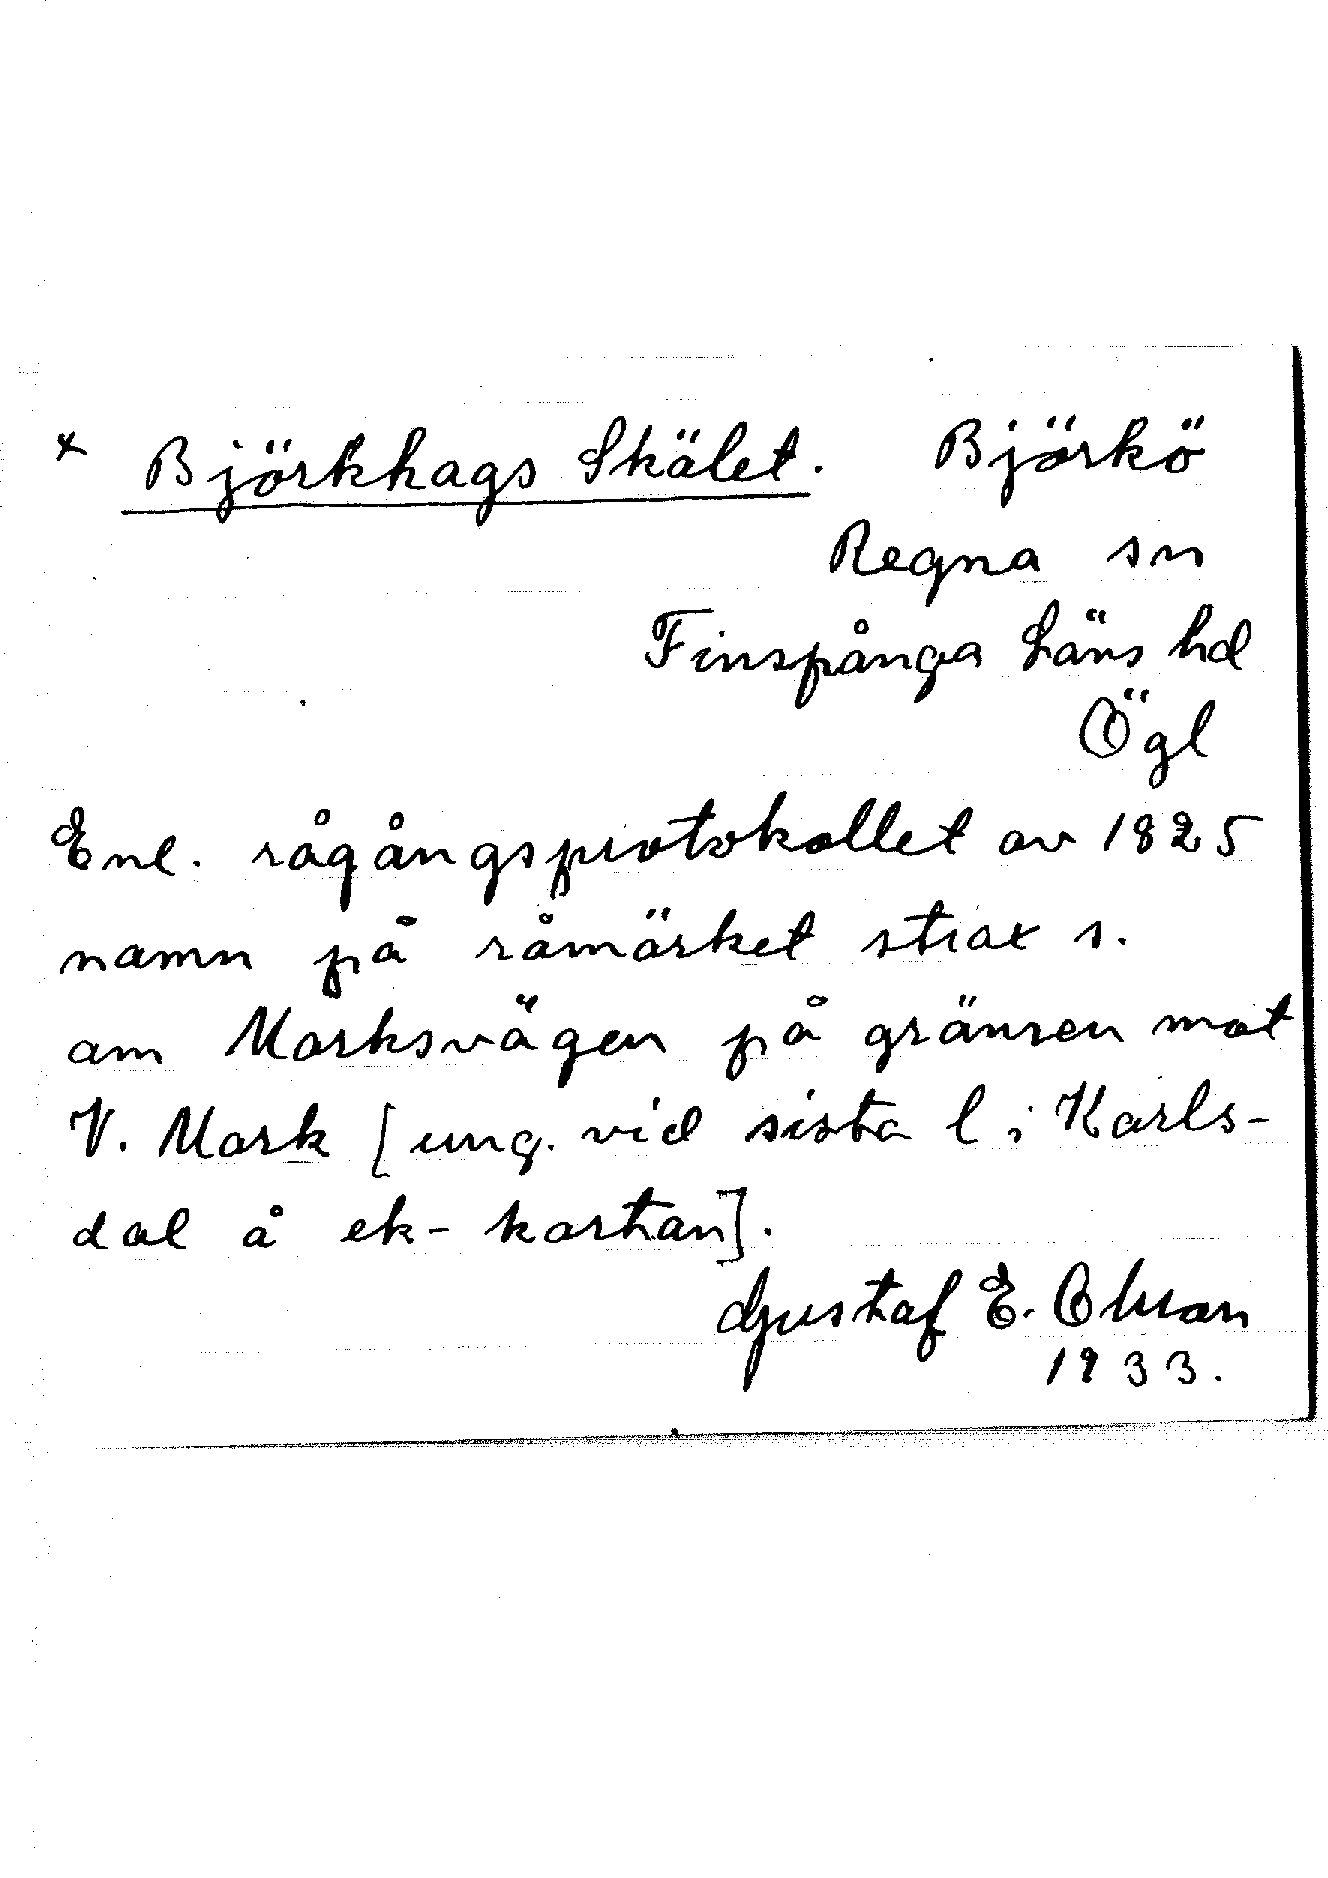 x Björkhags Skälet. Björkö
Regna sn
Finspånga Läns hd
Ögl
Enl. rågångsprotokollet av 1825
namn på råmärket strax s.
om Marksvägen på gränsen mot
V. Mark [ung. vid sista l i Karls-
dal å ek-kartan].
Gustaf E. Olsson
1933.